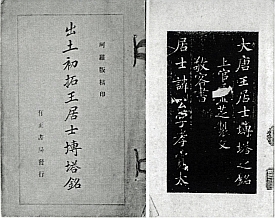 珂羅版精印
出土初拓王居士塼塔銘
有正書局發行
大唐王居士塼塔之銘
上官靈芝製文
敬客書
居士諱公字孝寬太